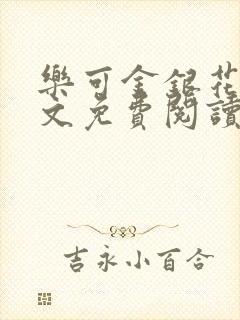 樂可金銀花
文免費閱讀
吉永小百合